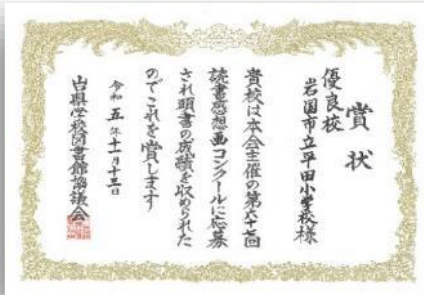 賞状
優良校
岩国市立平田小学校様
貴校は本会主催の第六十七回
読書感想画コンクールに応募
され頭書の成績を収められた
のでこれを賞します
令和五年十一月十三日
山口県学校図書館協議会